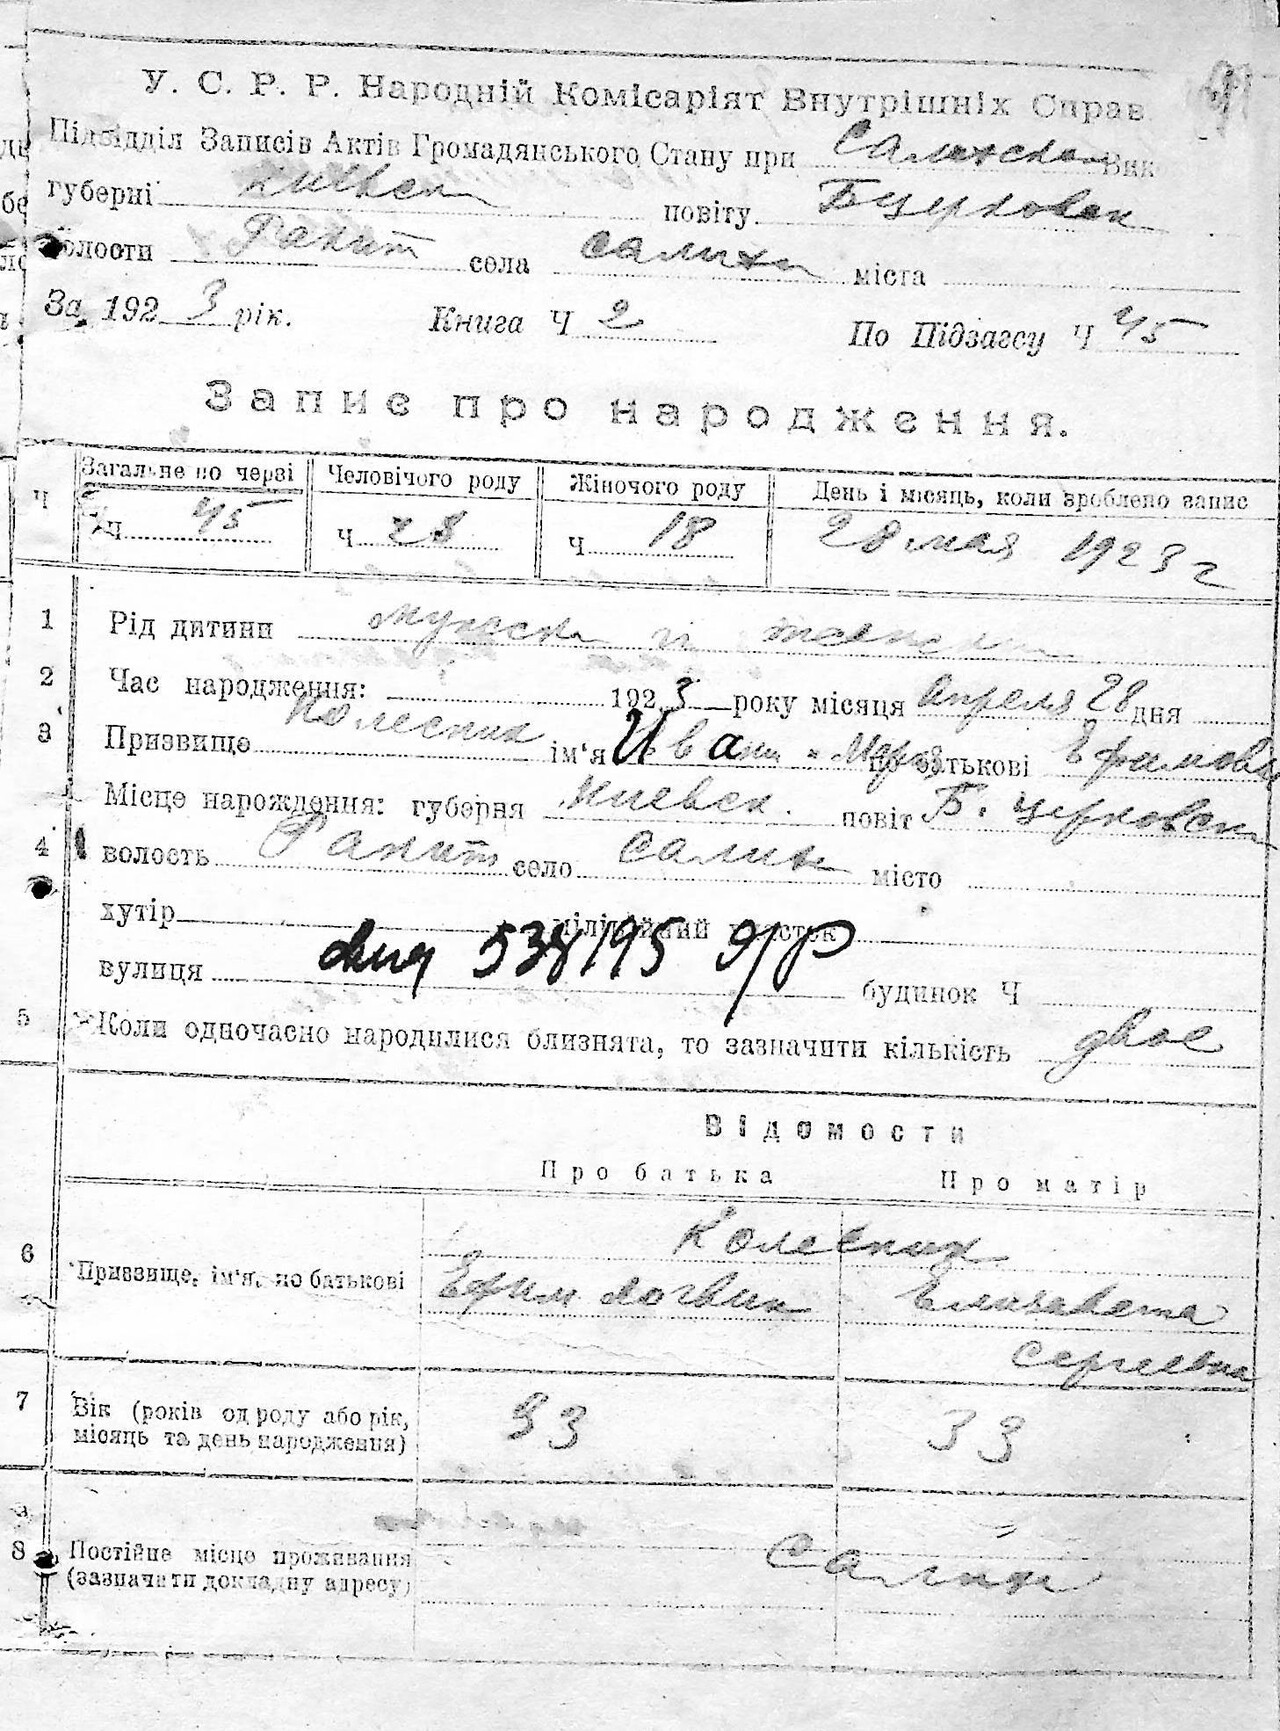 У. С. Р. Р. Народній Комісаріят Внутрішніх Справ
Підвідділ Записів Актів Громадянського Стану при Салихском Вик
губерні Киевск повіту Бцерковск
волости Ракит села Салихи міста
За 1923 рік. Книга Ч 2 По Підзагсу Ч 45
Запис про народження.
Ч Загальне по черзі Человічого роду Жіночого роду День і місяць, коли зроблено запис
Ч 45 Ч 28 Ч 18 28 мая 1923 г
1 Рід дитини мужск и женск
2 Час народження: 1923 року місяця Апреля 28 дня
3 Призвище Колесник ім'я Иван - Мария по батькові Ефимов
Місце нарождення: губерня Киевск. повіт Б. церковск
4 волость Ракит село Салихи місто
хутір міліційний участок
вулиця 538195 будинок Ч
5 Коли одночасно народилися близнята, то зазначити кількість двое
Відомости
Про батька Про матір
Колесник
6 Призвище, ім'я, по батькові Ефим Логвин Елизавета
Сергеевна
7 Вік (років од роду або рік, 33 33
місяць та день народження)
8 Постійне місце проживання Салихи
(зазначити докладну адресу)